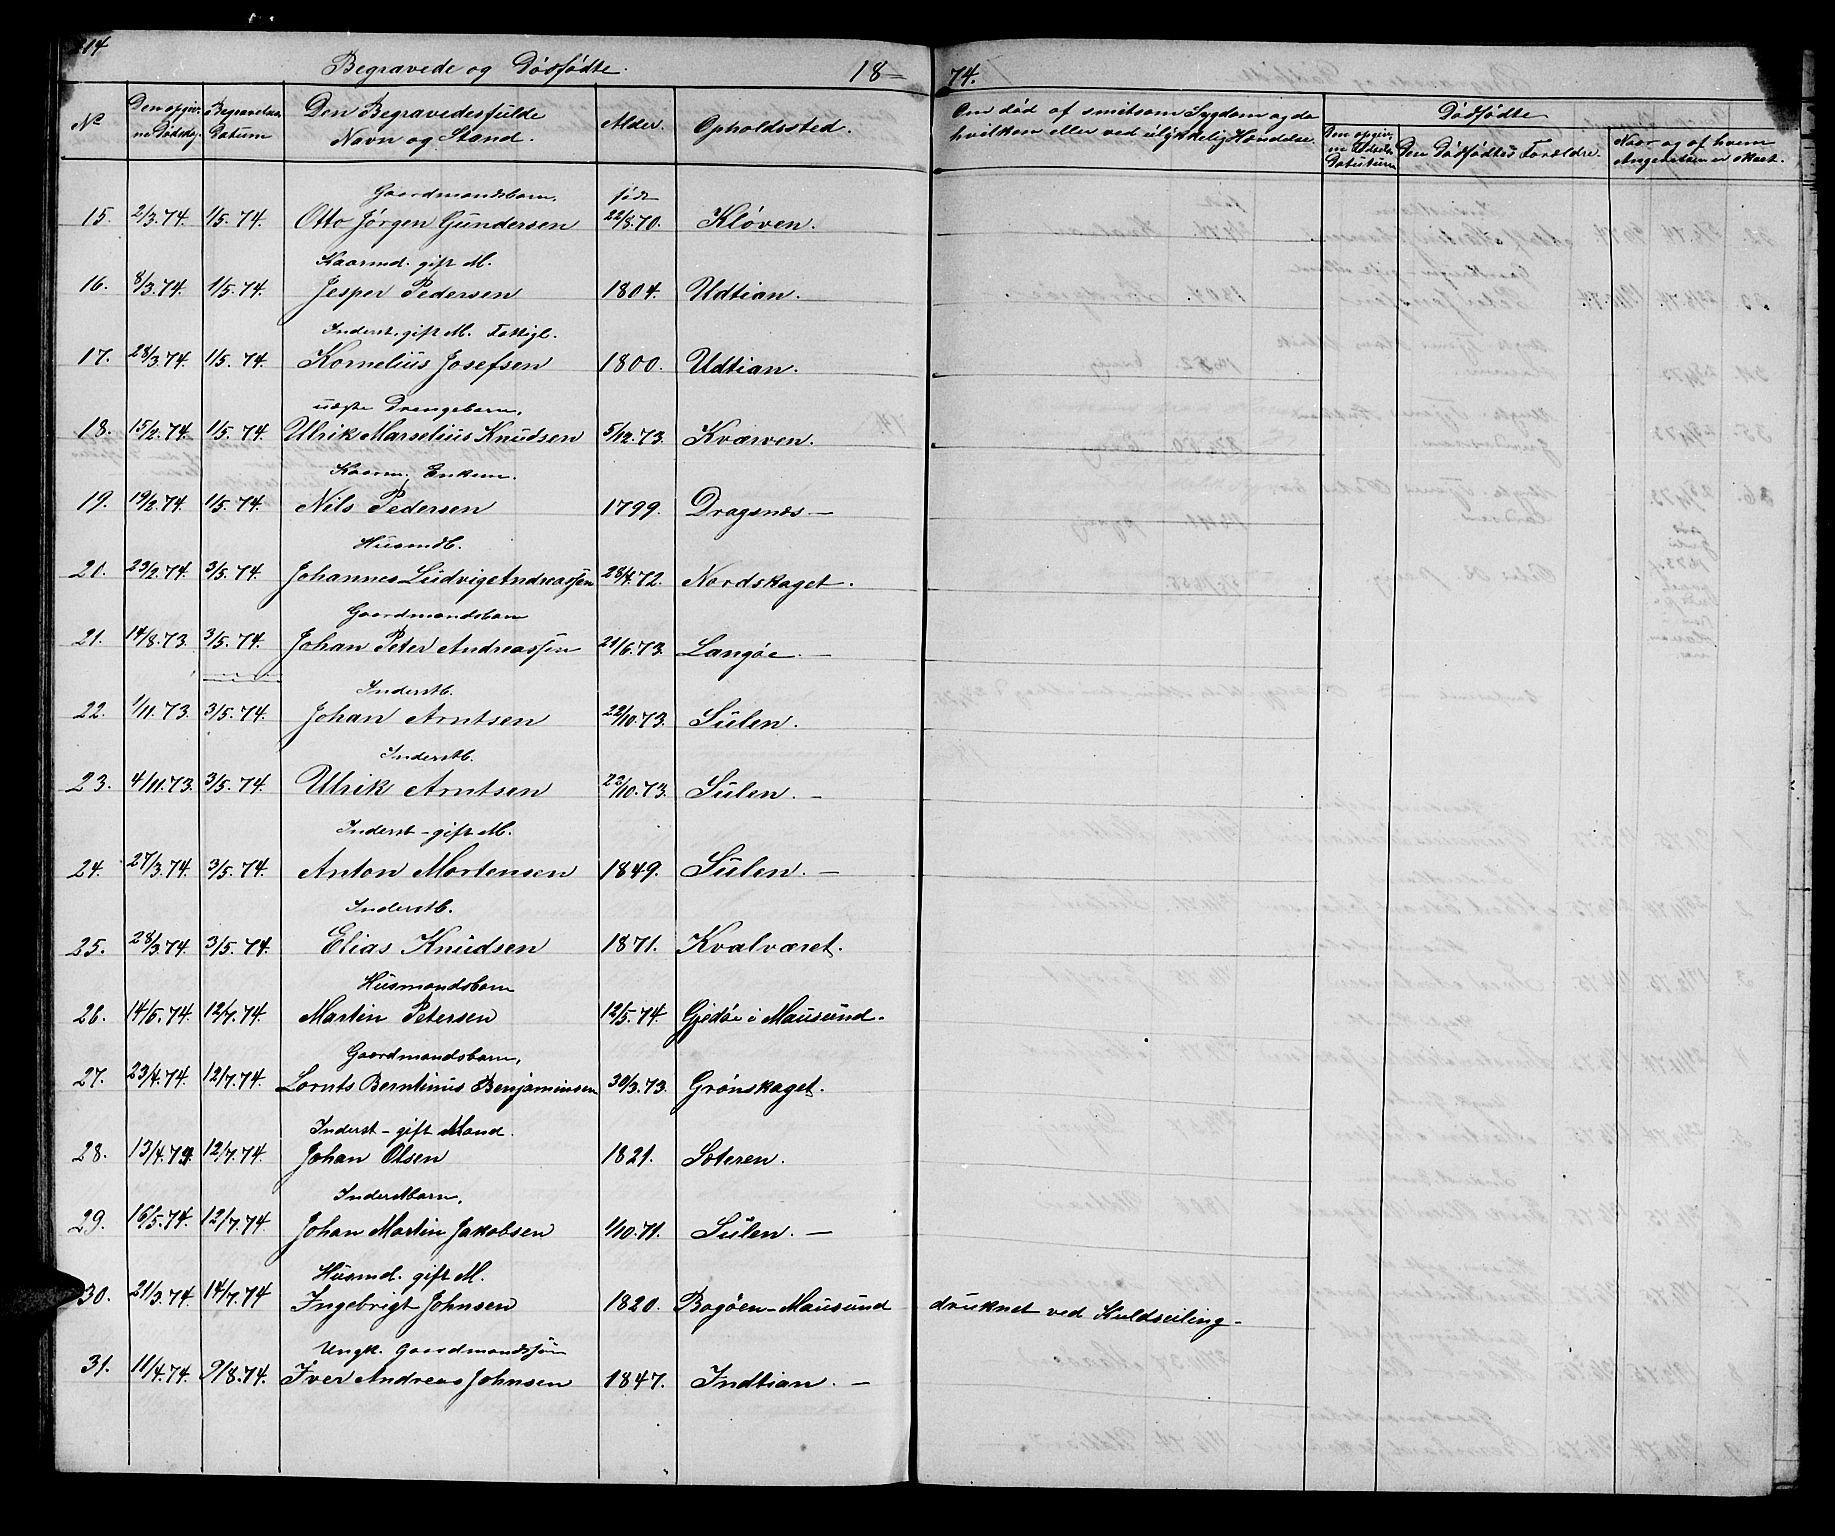 214
Begravede og Dödfödte. 18-74.
No Den opgivne Dødsdag Begravelses Datum Den Begravedes fulde Navn og Stand. Alder. Opholdssted. Om död af smitsom Sygdom og da hvilken eller ved ulykkelig Hændelse. Dödfödte
Den opgivne Födsels Datum Den Dödfödtes Forældre. Naar og af hvem Anmeldelsen er skeet.
Gaardmandsbarn. født
15. 2/3.74. 1/5.74. Otto Jørgen Gundersen 22/8.70. Kløven.
Kaarmd. gift M.
16. 8/3.74. 1/5.74. Jesper Pedersen 1804. Udtian.
Inderst. gift M. Fattigl.
17. 28/3.74. 1/5.74. Kornelius Josefsen 1800. Udtian.
uægte Drengebarn,
18. 15/2.74. 1/5.74. Ulrik Marselius Knudsen 5/12.73. Kværven.
Kaarm. Enkem.
19. 19/2.74. 1/5.74. Nils Pedersen 1799. Dragsnæs.—
Husmdb.
20. 23/2.74. 3/5.74. Johannes Ludvig Andreassen 28/4.72. Nordskaget.
Gaardmandsbarn
21. 14/8.73. 3/5.74. Johan Peter Andreassen 21/6.73. Langöe.—
Inderstb.
22. 1/11.73. 3/5.74. Johan Arntsen 22/10.73. Sulen.
Inderstb.
23. 4/11.73. 3/5.74. Ulrik Arntsen 22/10.73. Sulen.—
Inderst-gift M.
24. 27/3.74. 3/5.74. Anton Mortensen 1849. Sulen.—
Inderstb.
25. 28/3.74. 3/5.74. Elias Knudsen 1871. Kvalværet.
Husmandsbarn
26. 14/5.74. 12/7.74. Martin Petersen 12/5.74. Gjedöe i Mausund.
Gaardmandsbarn,
27. 23/4.74. 12/7.74. Lornts Berntinus Benjaminsen 30/3.73. Grönskaget.
Inderst-gift Mand.
28. 13/4.74. 12/7.74. Johan Olsen 1821. Soteren.
Inderstbarn,
29. 16/5.74. 12/7.74. Johan Martin Jakobsen 1/10.71. Sulen.—
Husmd. gift M.
30. 21/3.74. 14/7.74 Ingebrigt Johnsen 1820. Bogöen-Mausund druknet ved Kuldseiling.
Ungk. Gaardmandssön
31. 11/4.74. 9/8.74. Iver Andreas Johnsen 1847. Indtian.—